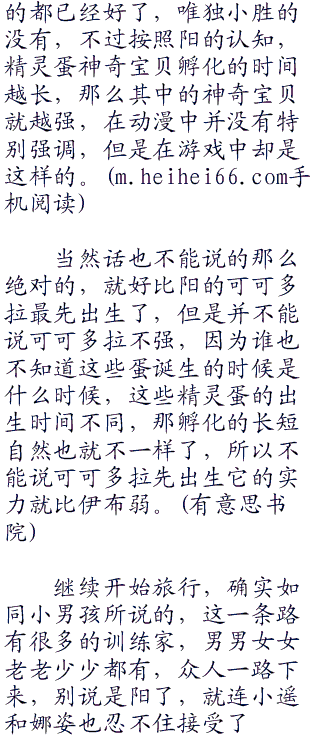 的都已经好了，唯独小胜的
没有，不过按照阳的认知，
精灵蛋神奇宝贝孵化的时间
越长，那么其中的神奇宝贝
就越强，在动漫中并没有特
别强调，但是在游戏中却是
这样的。(m.heihei66.com手
机阅读)
当然话也不能说的那么
绝对的，就好比阳的可可多
拉最先出生了，但是并不能
说可可多拉不强，因为谁也
不知道这些蛋诞生的时候是
什么时候，这些精灵蛋的出
生时间不同，那孵化的长短
自然也就不一样了，所以不
能说可可多拉先出生它的实
力就比伊布弱。(有意思书
院)
继续开始旅行，确实如
同小男孩所说的，这一条路
有很多的训练家，男男女女
老老少少都有，众人一路下
来，别说是阳了，就连小遥
和娜姿也忍不住接受了